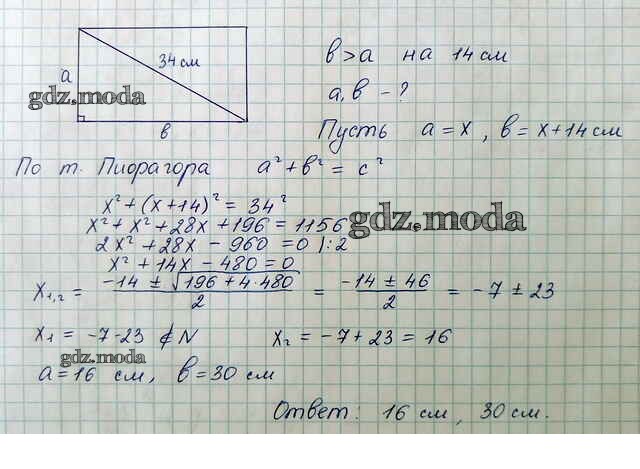 34 см
a
в
в > a на 14 см
a, в - ?
gdz.moda
Пусть a = x, в = x + 14 см
По т. Пифагора a² + в² = c²
x² + (x + 14)² = 34²
x² + x² + 28x + 196 = 1156
gdz.moda
2x² + 28x - 960 = 0 |:2
x² + 14x - 480 = 0
x₁,₂ = (-14 ± √(196 + 4·480))/2 = (-14 ± 46)/2 = -7 ± 23
x₁ = -7-23 ∉ N x₂ = -7 + 23 = 16
gdz.moda
a = 16 см, в = 30 см
Ответ: 16 см, 30 см.